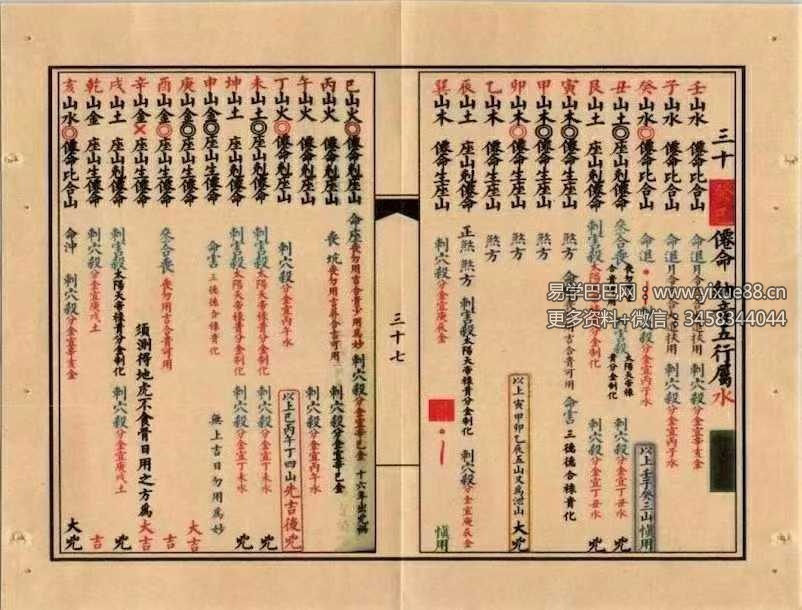 三十 癸巳 僊命 納音五行屬水
壬山水 僊命比合山 刺穴殺 分金宜辛亥金
子山水 僊命比合山 刺穴殺 分金宜丙子水
癸山水 僊命比合山 命進 刺穴殺 分金宜丙子水
以上壬子癸三山慎用
丑山土 座山剋僊命 太陽天帝祿貴分金制化 刺穴殺 分金宜丁丑水 凶
艮山土 座山剋僊命 刺害殺 太陽天帝祿貴分金制化 刺穴殺 分金宜丁丑水 凶
寅山木 僊命生座山 煞方 命害 三德德合祿貴化
甲山木 僊命生座山 煞方
卯山木 僊命生座山 煞方
以上寅甲卯乙辰五山又為泄山 大凶
乙山木 僊命生座山 煞方
辰山土 座山剋僊命 正煞 煞方 刺害殺 太陽天帝祿貴分金制化 刺穴殺 分金宜庚辰金
巽山木 僊命生座山 刺穴殺 分金宜庚辰金 慎用
三十七
巳山火 僊命剋座山 命座 刺穴殺 分金宜辛巳金 十六年出凶禍
丙山火 僊命剋座山 喪坑 刺穴殺 分金宜辛巳金
午山火 僊命剋座山 刺穴殺 分金宜丙午水
丁山火 僊命剋座山 刺穴殺 分金宜丙午水
以上巳丙午丁四山先吉後凶
未山土 座山剋僊命 刺害殺 太陽天帝祿貴分金制化 刺穴殺 分金宜丁未水 凶
坤山土 座山剋僊命 刺害殺 太陽天帝祿貴分金制化 刺穴殺 分金宜丁未水 凶
申山金 座山生僊命 命害 三德德合祿貴化 無上吉日勿用為妙
庚山金 座山生僊命 大吉
酉山金 座山生僊命 參合喪 喪勿用吉合貴可用 吉
辛山金 座山生僊命 須測得地虎不食骨日用之方為大吉
戌山土 座山剋僊命 刺害殺 太陽天帝祿貴分金制化 刺穴殺 分金宜庚戌土 大凶
乾山金 座山生僊命 刺穴殺 分金宜庚戌土 吉
亥山水 僊命比合山 命沖 刺穴殺 分金宜辛亥金 大凶
易学巴巴网 www.yixue88.cn
更多资料+微信：3458344044